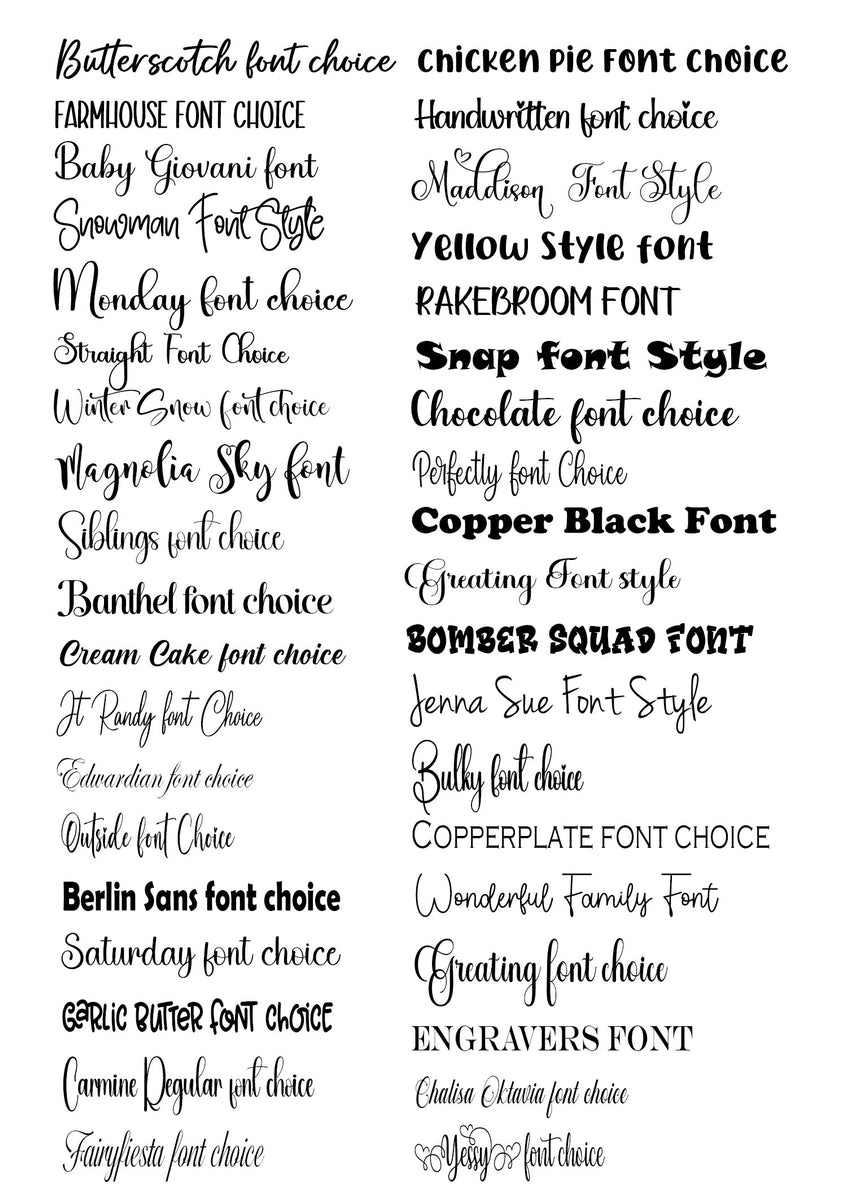 Butterscotch font choice
FARMHOUSE FONT CHOICE
Baby Giovani font
Snowman Font Style
Monday font choice
Straight Font Choice
Winter Snow font choice
Magnolia Sky font
Siblings font choice
Banthel font choice
Cream Cake font choice
Jt Randy font Choice
Edwardian font choice
Outside font Choice
Berlin Sans font choice
Saturday font choice
GaRLiC BUTTeR FONT CHOICE
Carmine Regular font choice
Fairyfiesta font choice
Chicken Pie Font Choice
Handwritten font choice
Maddison Font Style
Yellow Style font
RAKEBROOM FONT
Snap font Style
Chocolate font choice
Perfectly font Choice
Copper Black Font
Greating Font style
BOMBER SQUAD FONT
Jenna Sue Font Style
Bulky font choice
COPPERPLATE FONT CHOICE
Wonderful Family Font
Greating font choice
ENGRAVERS FONT
Chalisa Oktavia font choice
Yessy font choice